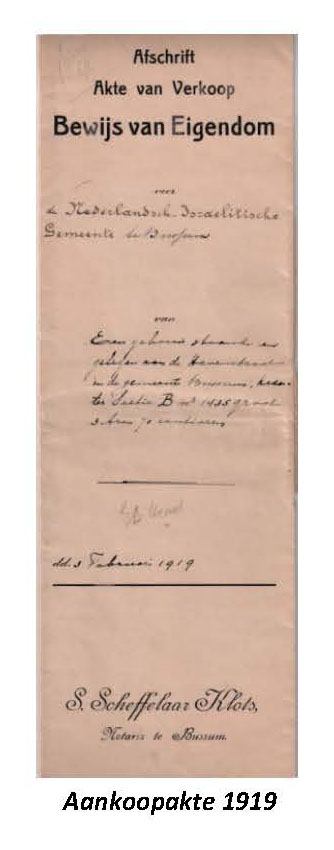 Afschrift
Akte van Verkoop
Bewijs van Eigendom
voor
de Nederlandsch-Israelitische
Gemeente te Bussum
van
Een gebouw staande en
gelegen aan de Havenstraat
in de gemeente Bussum, kadas-
ter Sectie B no 1435 groot
3 Aren 70 centiaren
dd. 3 Februari 1919
S. Scheffelaar Klots,
Notaris te Bussum.
Aankoopakte 1919